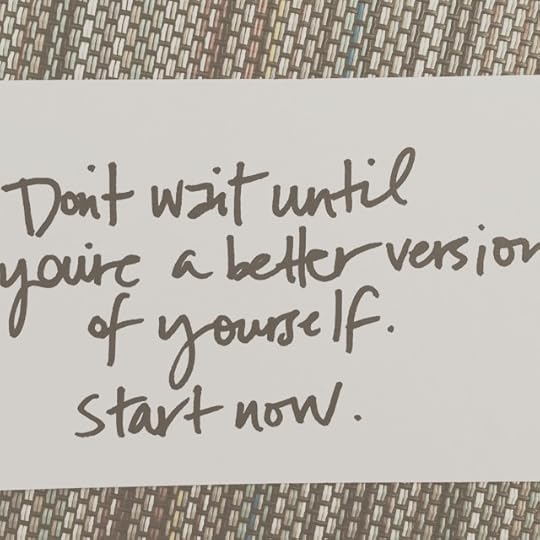 Don't wait until
you're a better version
of yourself.
Start now.